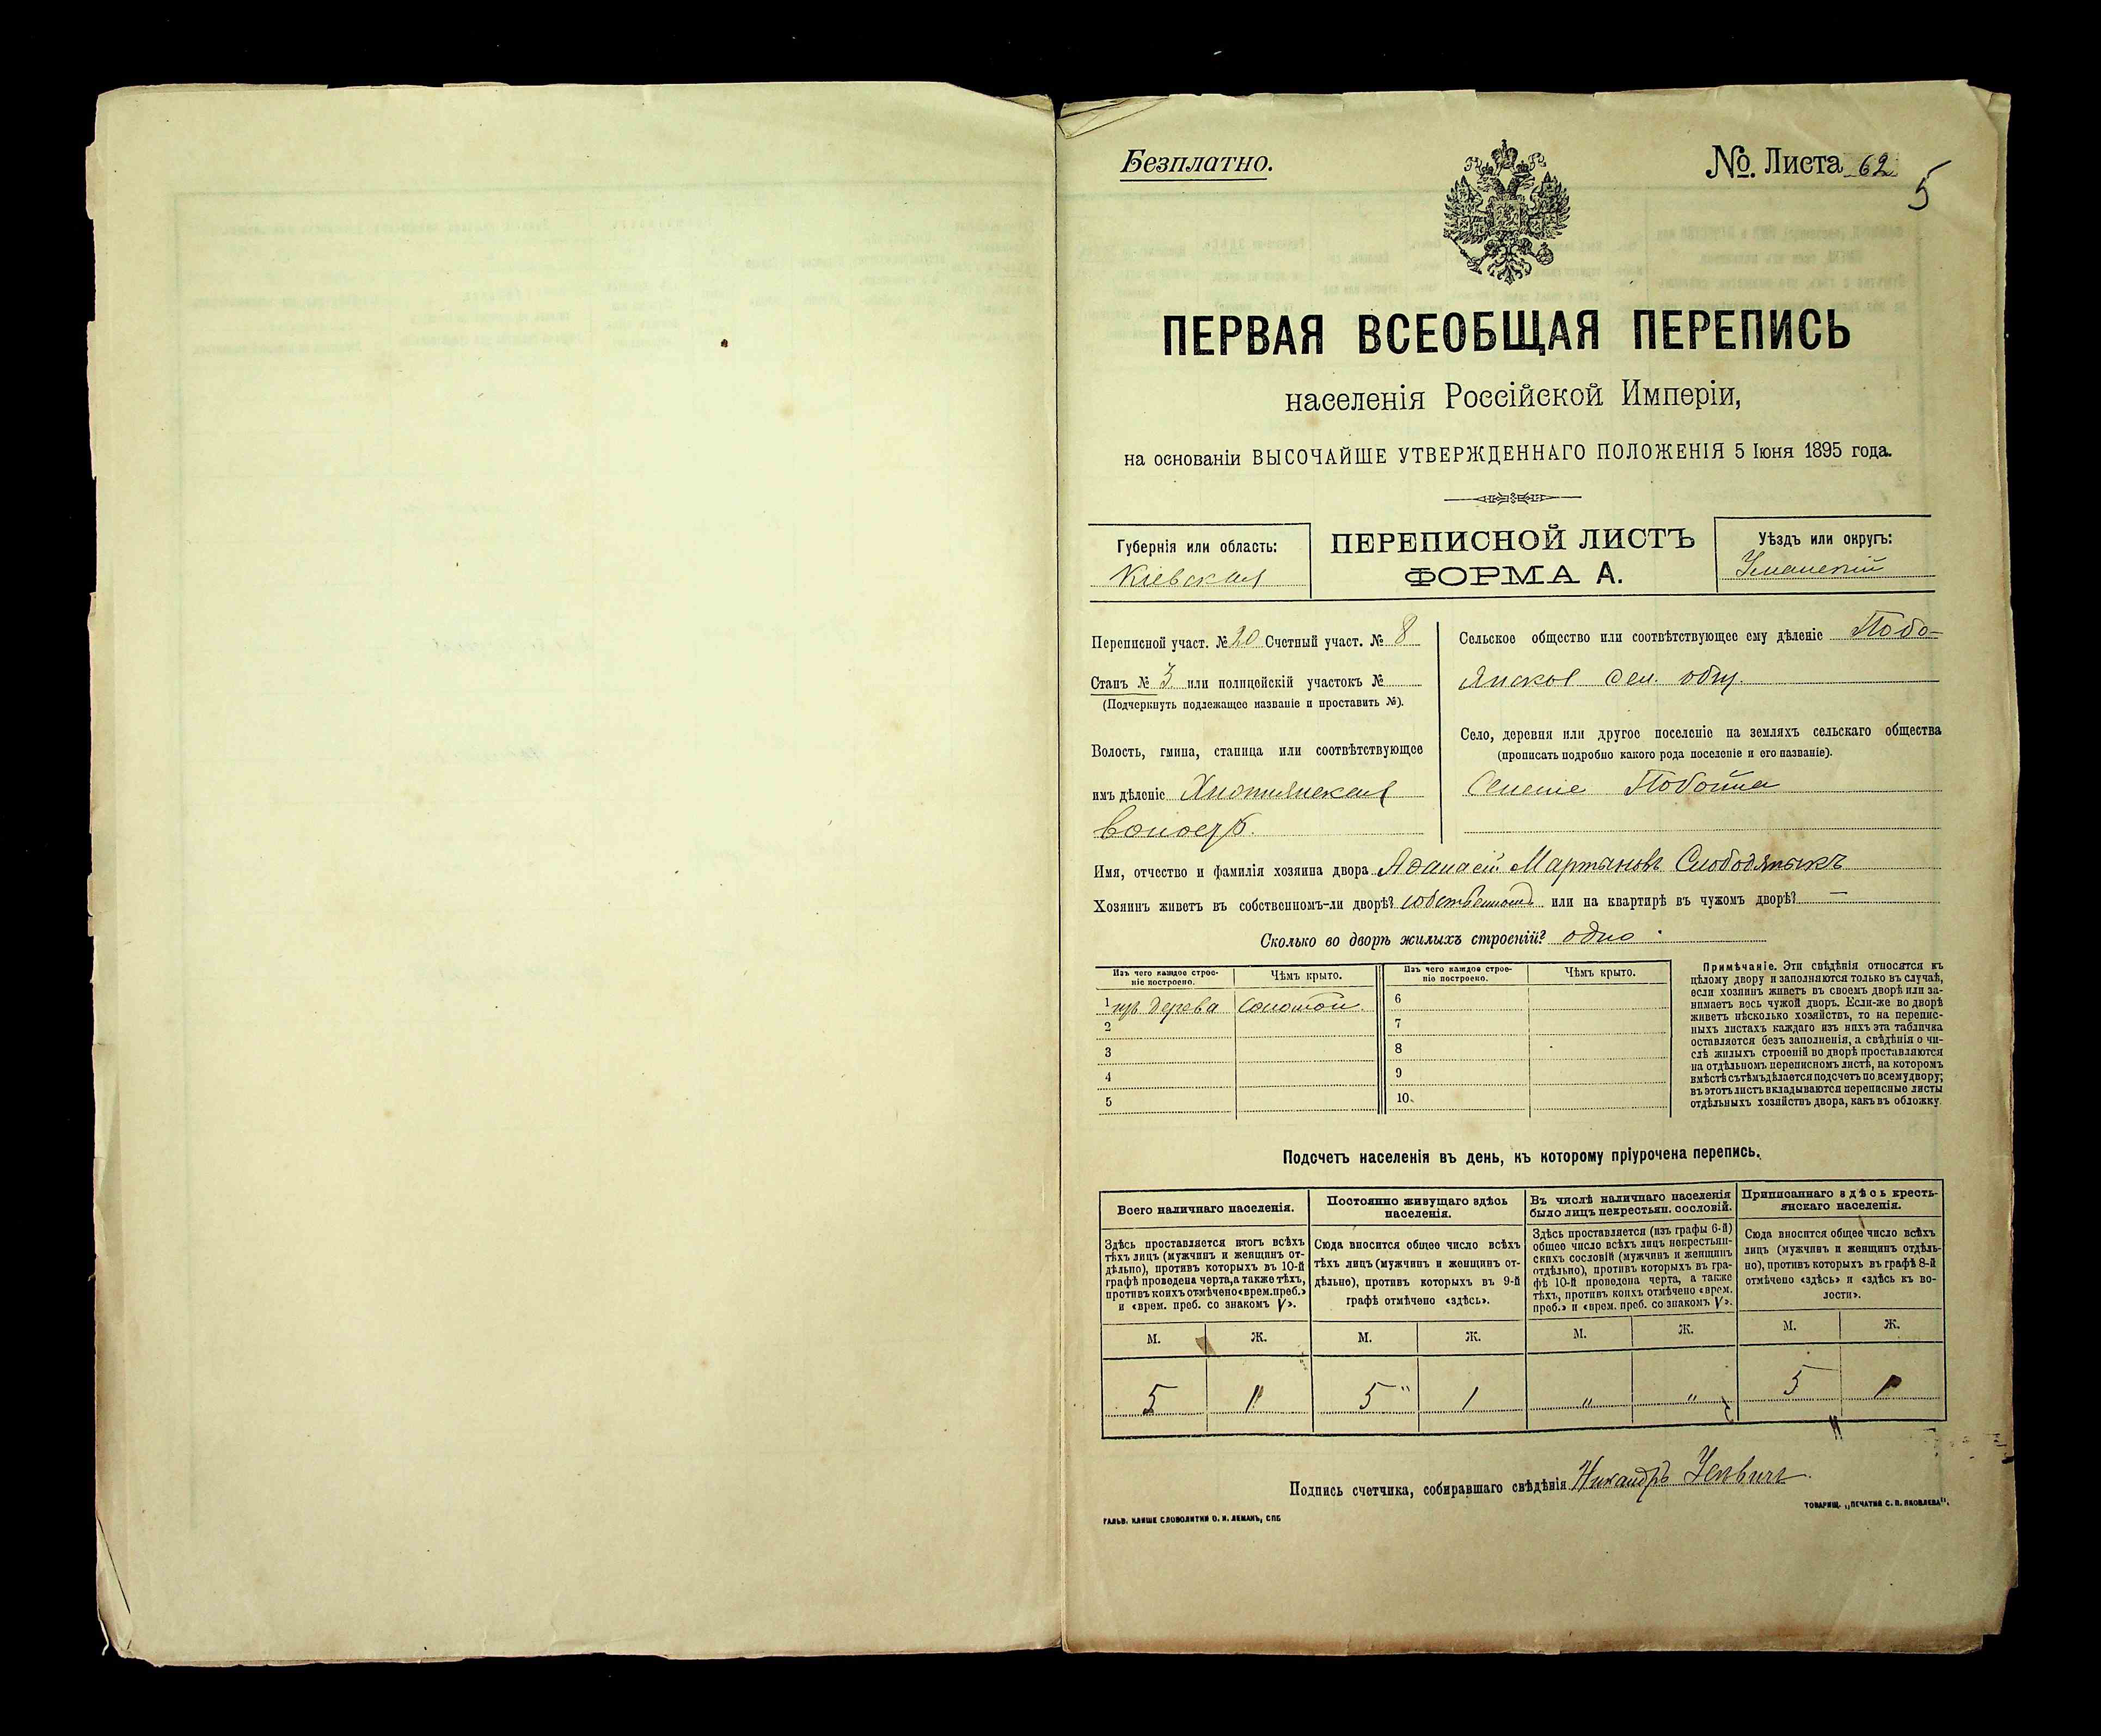 Безплатно.
№. Листа 62
5
ПЕРВАЯ ВСЕОБЩАЯ ПЕРЕПИСЬ
населенія Россійской Имперіи,
на основаніи ВЫСОЧАЙШЕ УТВЕРЖДЕННАГО ПОЛОЖЕНІЯ 5 Іюня 1895 года.
Губернія или область:
Кіевская
ПЕРЕПИСНОЙ ЛИСТЪ
ФОРМА А.
Уѣздъ или округъ:
Уманскій
Переписной участ. № 20 Счетный участ. № 8
Станъ № 3 или полицейскій участокъ №
(Подчеркнуть подлежащее названіе и проставить №).
Волость, гмина, станица или соотвѣтствующее
имъ дѣленіе
волость.
Сельское общество или соотвѣтствующее ему дѣленіе Побо-
янское сел. общ.
Село, деревня или другое поселеніе на земляхъ сельскаго общества
(прописать подробно какого рода поселеніе и его названіе).
Селеніе Побойна
Имя, отчество и фамилія хозяина двора Афанасій Мартыновъ Слободяныкъ
Хозяинъ живетъ въ собственномъ-ли дворѣ? собственномъ или на квартирѣ въ чужомъ дворѣ? —
Сколько во дворѣ жилыхъ строеній? одно
Изъ чего каждое строе-
ніе построено.
Чѣмъ крыто.
Изъ чего каждое строе-
ніе построено.
Чѣмъ крыто.
1 изъ дерева соломой
2
3
4
5
6
7
8
9
10.
Примѣчаніе. Эти свѣдѣнія относятся къ
цѣлому двору и заполняются только въ случаѣ,
если хозяинъ живетъ въ своемъ дворѣ или за-
нимаетъ весь чужой дворъ. Если-же во дворѣ
живетъ нѣсколько хозяйствъ, то на перепис-
ныхъ листахъ каждаго изъ нихъ эта табличка
оставляется безъ заполненія, а свѣдѣнія о чи-
слѣ жилыхъ строеній во дворѣ проставляются
на отдѣльномъ переписномъ листѣ, на которомъ
вмѣстѣ съ тѣмъ дѣлается подсчетъ по всему двору;
въ этотъ листъ вкладываются переписные листы
отдѣльныхъ хозяйствъ двора, какъ въ обложку.
Подсчетъ населенія въ день, къ которому пріурочена перепись.
Всего наличнаго населенія.
Здѣсь проставляется итогъ всѣхъ
тѣхъ лицъ (мужчинъ и женщинъ от-
дѣльно), противъ которыхъ въ 10-й
графѣ проведена черта, а также тѣхъ,
противъ коихъ отмѣчено «врем. преб.»
и «врем. преб. со знакомъ V».
Постоянно живущаго здѣсь
населенія.
Сюда вносится общее число всѣхъ
тѣхъ лицъ (мужчинъ и женщинъ от-
дѣльно), противъ которыхъ въ 9-й
графѣ отмѣчено «здѣсь».
Въ числѣ наличнаго населенія
было лицъ некрестьян. сословій.
Здѣсь проставляется (изъ графы 6-й)
общее число всѣхъ лицъ некрестьян-
скихъ сословій (мужчинъ и женщинъ
отдѣльно), противъ которыхъ въ гра-
фѣ 10-й проведена черта, а также
тѣхъ, противъ коихъ отмѣчено «врем.
преб.» и «врем. преб. со знакомъ V».
Приписаннаго здѣсь кресть-
янскаго населенія.
Сюда вносится общее число всѣхъ
лицъ (мужчинъ и женщинъ отдѣль-
но), противъ которыхъ въ графѣ 8-й
отмѣчено «здѣсь» и «здѣсь къ во-
лости».
М. Ж. М. Ж. М. Ж. М. Ж.
5 1 5 " 1 " " 5 1
Подпись счетчика, собиравшаго свѣдѣнія Никандръ
ГАЛЬВ. КЛИШЕ СЛОВОЛИТНИ О. И. ЛЕМАНЪ, СПБ
ТОВАРИЩ. „ПЕЧАТНЯ С. П. ЯКОВЛЕВА".